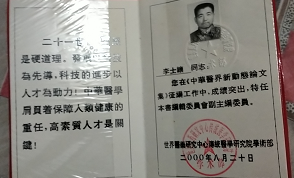 二十一世
是硬道理。
為先導，科技的進步以
人才為動力！中華醫學
肩負着保障人類健康的
重任，高素質人才是關
鍵！
李士 同志：
您在《中華醫界新動態論文
集》征編工作中，成績突出，特任
本書編輯委員會副主編委員。
世界醫 研究中心傳統醫學研究院學術部
二000年八月二十日